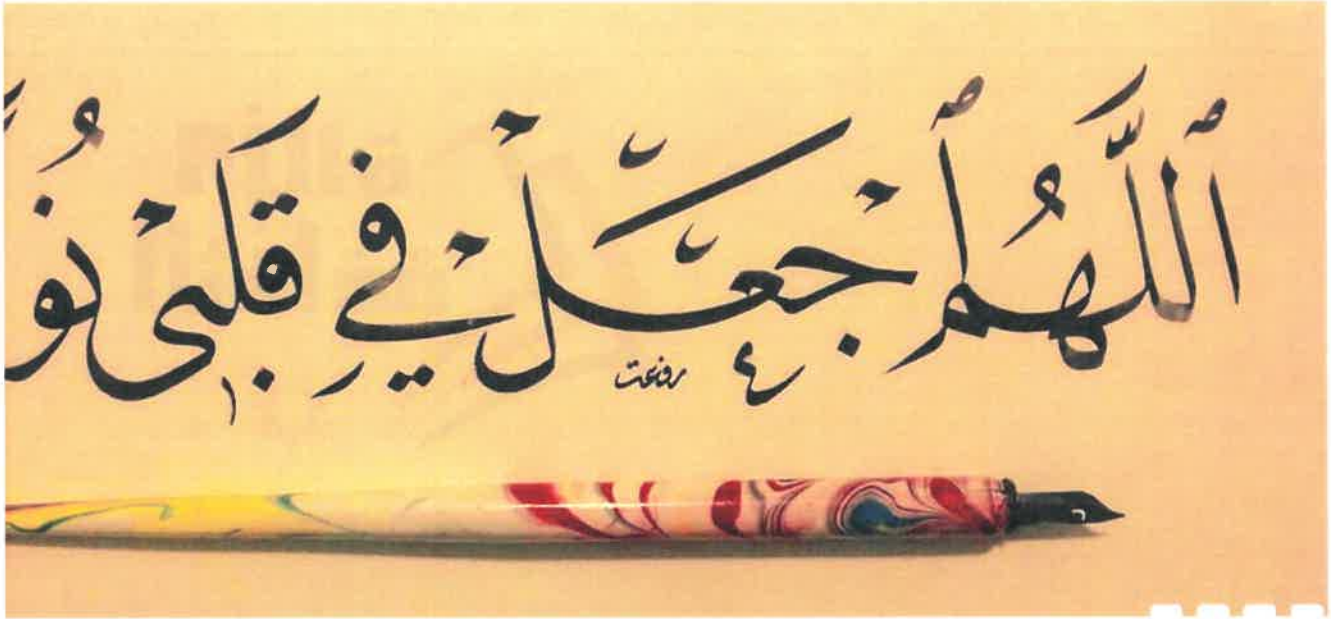 ٱللَّهُمَّ ٱجْعَلْ فِي قَلْبِي نُو
رفعت